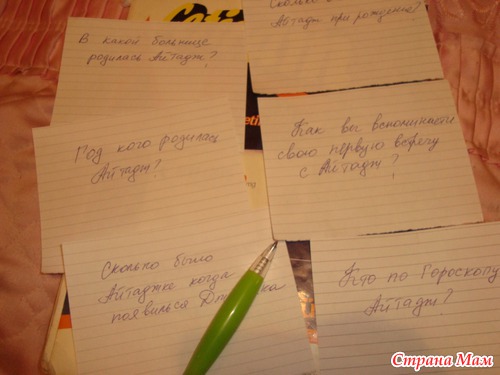 В какой больнице
родилась Айтадж?
Сколько
Айтадж при рождении?
Год кого родилась
Айтадж?
Как вы вспоминаете
свою первую встречу
с Айтадж?
Сколько было
Айтаджке когда
появилься
Кто по Гороскопу
Айтадж?
Страна Мам